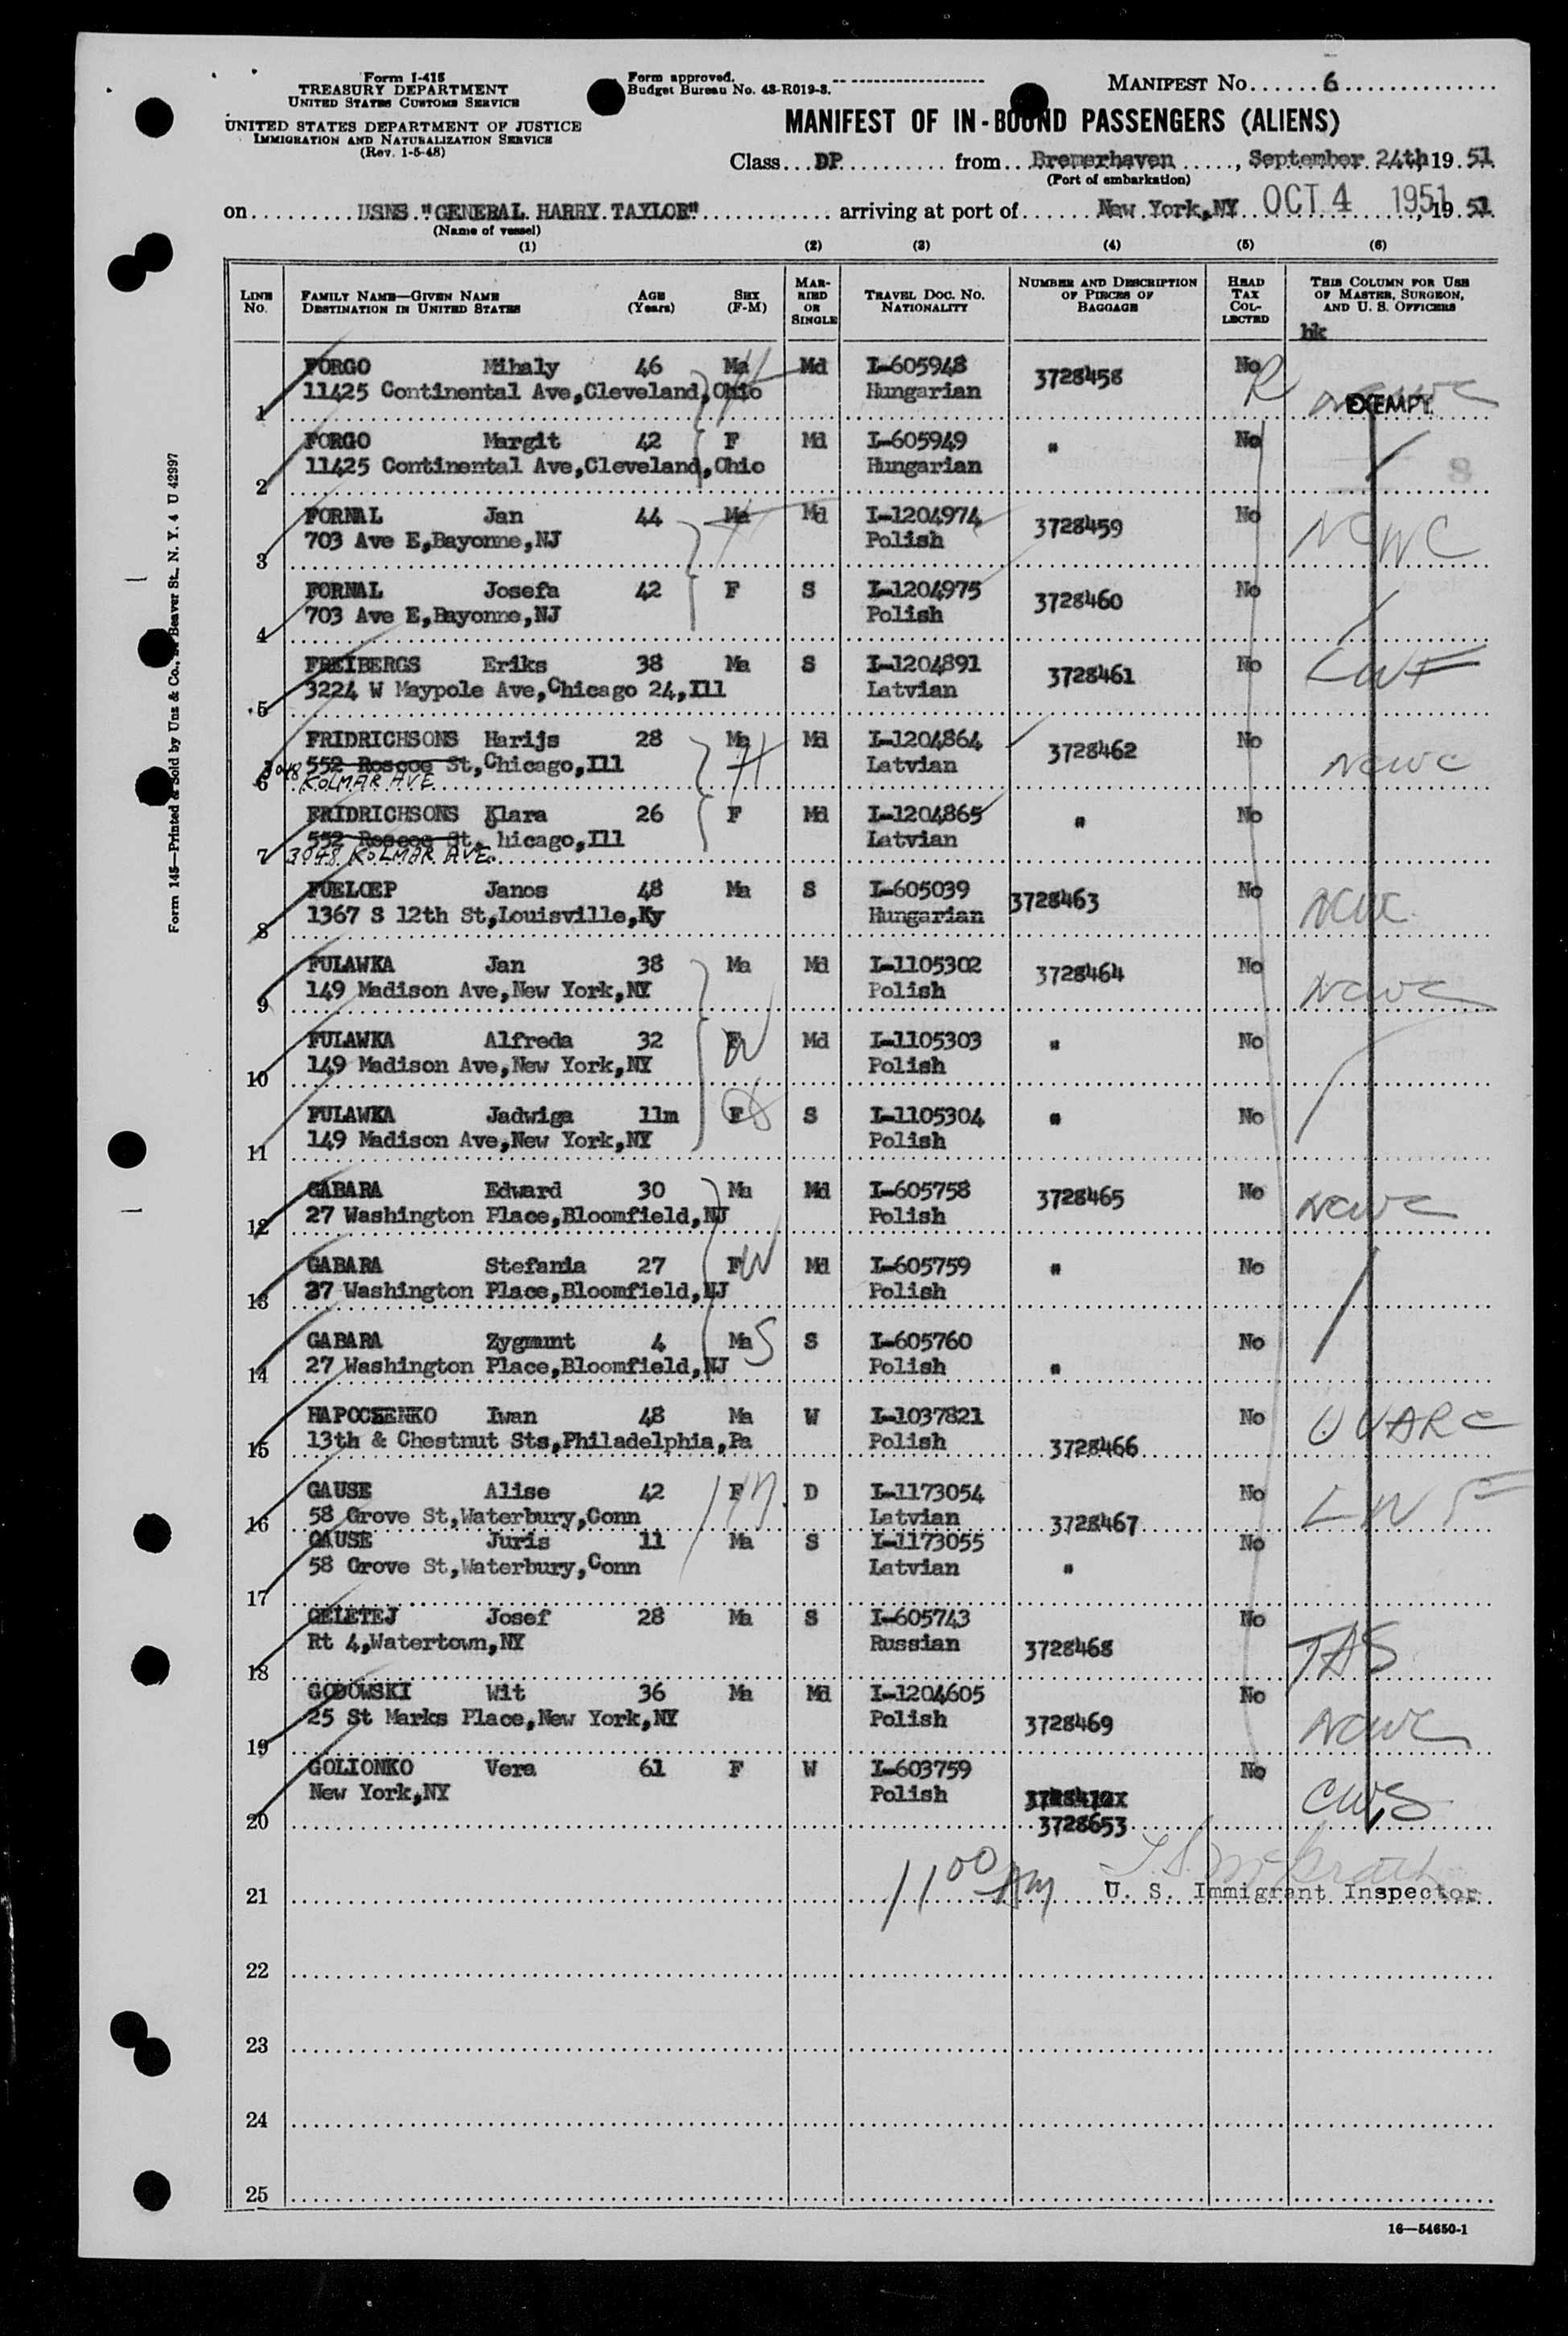 Form I-415
TREASURY DEPARTMENT
UNITED STATES CUSTOMS SERVICE
UNITED STATES DEPARTMENT OF JUSTICE
IMMIGRATION AND NATURALIZATION SERVICE
(Rev. 1-5-48)
Form approved.
Budget Bureau No. 43-R019-3.
MANIFEST No. 6
MANIFEST OF IN-BOUND PASSENGERS (ALIENS)
Class DP from Bremerhaven, September 24th, 19 51
(Port of embarkation)
on USNS "GENERAL HARRY TAYLOR" arriving at port of New York, NY OCT 4 1951, 19 51
(Name of vessel)
(1) (2) (3) (4) (5) (6)
LINE No. FAMILY NAME—GIVEN NAME DESTINATION IN UNITED STATES AGE (Years) SEX (F-M) MARRIED OR SINGLE TRAVEL DOC. NO. NATIONALITY NUMBER AND DESCRIPTION OF PIECES OF BAGGAGE HEAD TAX COLLECTED THIS COLUMN FOR USE OF MASTER, SURGEON, AND U. S. OFFICERS
hk
FORGO Mihaly 46 Ma Md I-605948 3728458 No
1 11425 Continental Ave,Cleveland,Ohio Hungarian NCWC EXEMPT
FORGO Margit 42 F Md I-605949 " No
2 11425 Continental Ave,Cleveland,Ohio Hungarian
FORNAL Jan 44 Ma Md I-1204974 3728459 No NCWC
3 703 Ave E,Bayonne,NJ Polish
FORNAL Josefa 42 F S I-1204975 3728460 No
4 703 Ave E,Bayonne,NJ Polish
FREIBERGS Eriks 38 Ma S I-1204891 3728461 No LWF
5 3224 W Maypole Ave,Chicago 24,Ill Latvian
FRIDRICHSONS Harijs 28 Ma Md I-1204864 3728462 No NCWC
552 Roscoe St,Chicago,Ill Latvian
6 3048 KOLMAR AVE
FRIDRICHSONS Klara 26 F Md I-1204865 " No
552 Roscoe St, hicago,Ill Latvian
7 3048 KOLMAR AVE.
FUELOEP Janos 48 Ma S I-605039 3728463 No NCWC
8 1367 S 12th St,Louisville,Ky Hungarian
FULAWKA Jan 38 Ma Md I-1105302 3728464 No NCWC
9 149 Madison Ave,New York,NY Polish
FULAWKA Alfreda 32 F W Md I-1105303 " No
10 149 Madison Ave,New York,NY Polish
FULAWKA Jadwiga 11m F S I-1105304 " No
11 149 Madison Ave,New York,NY Polish
GABARA Edward 30 Ma Md I-605758 3728465 No NCWC
12 27 Washington Place,Bloomfield,NJ Polish
GABARA Stefania 27 F W Md I-605759 " No
13 27 Washington Place,Bloomfield,NJ Polish
GABARA Zygmunt 4 Ma S S I-605760 No
14 27 Washington Place,Bloomfield,NJ Polish "
HAPOCZENKO Iwan 48 Ma W I-1037821 No UUARC
15 13th & Chestnut Sts,Philadelphia,Pa Polish 3728466
GAUSE Alise 42 F D I-1173054 No LWF
16 58 Grove St,Waterbury,Conn Latvian 3728467
GAUSE Juris 11 Ma S I-1173055 No
17 58 Grove St,Waterbury,Conn Latvian "
GELETEJ Josef 28 Ma S I-605743 No
18 Rt 4,Watertown,NY Russian 3728468 TAS
GODOWSKI Wit 36 Ma Md I-1204605 No
19 25 St Marks Place,New York,NY Polish 3728469 NCWC
GOLIONKO Vera 61 F W I-603759 No
New York,NY Polish CWS
20 3728653
21 11 00 AM U. S. Immigrant Inspector
22
23
24
25
16—54650-1
Form 145—Printed & Sold by Unz & Co., Beaver St., N. Y. 4 U 42997